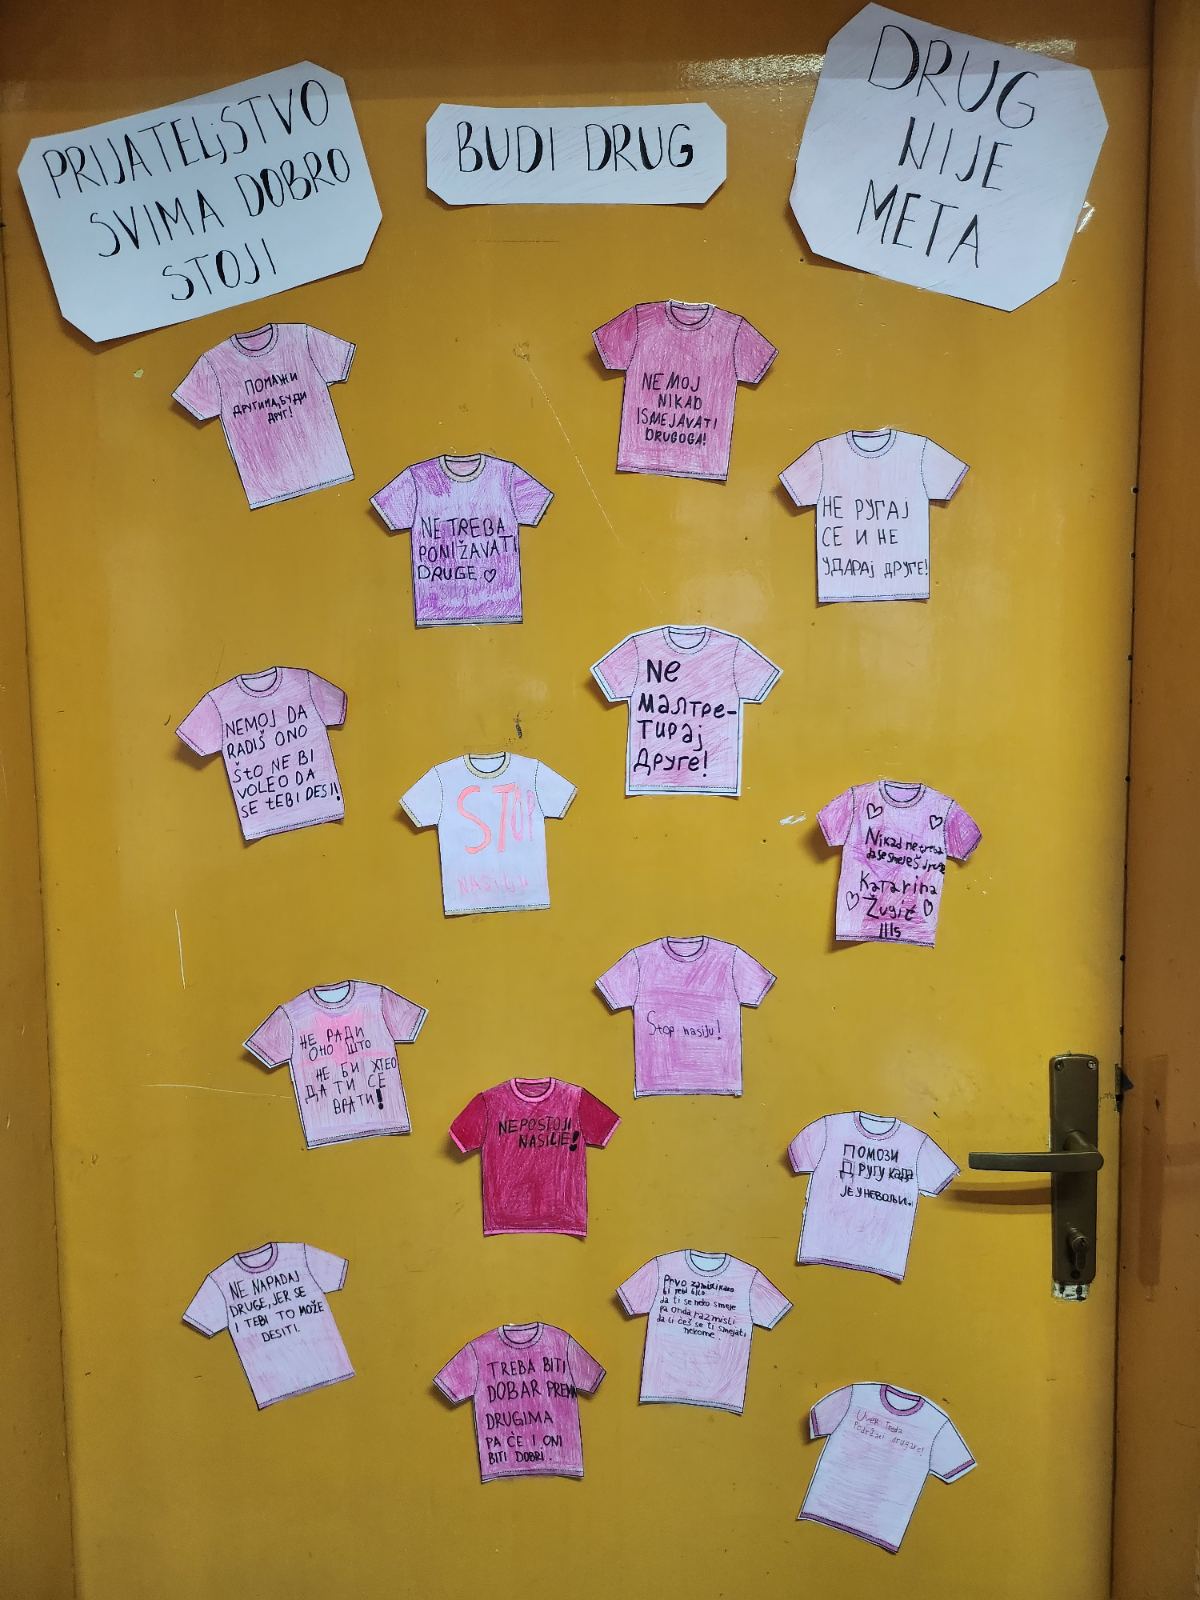 PRIJATELjSTVO
SVIMA DOBRO
STOJI
BUDI DRUG
DRUG
NIJE
META
ПОМАЖИ
ДРУГИМА, БУДИ
ДРУГ!
NEMOJ
NIKAD
ISMEJAVATI
DRUGOGA!
NE TREBA
PONIŽAVATI
DRUGE ♡
НЕ РУГАЈ
СЕ И НЕ
УДАРАЈ ДРУГЕ!
NEMOJ DA
RADIŠ ONO
ŠTO NE BI
VOLEO DA
SE TEBI DESI!
Не
малтре-
тирај
Друге!
STOP
NASILJU
Nikad ne treba
da se smeješ
Katarina
Žugić
III5
НЕ РАДИ
ОНО ШТО
НЕ БИ ХТЕО
ДА ТИ СЕ
ВРАТИ!
Stop nasilju!
NEPOSTOJI
NASILIE!
ПОМОЗИ
ДРУГУ када
ЈЕ У НЕВОЉИ..
NE NAPADAJ
DRUGE, JER SE
I TEBI TO MOŽE
DESITI.
Prvo zamisli kako
bi tebi bilo
da ti se neko smeje
pa onda razmisli
da li ćeš se ti smejati
nekome.
TREBA BITI
DOBAR PREMA
DRUGIMA
PA ĆE I ONI
BITI DOBRI.
Uvek treba
Podržati drugare!